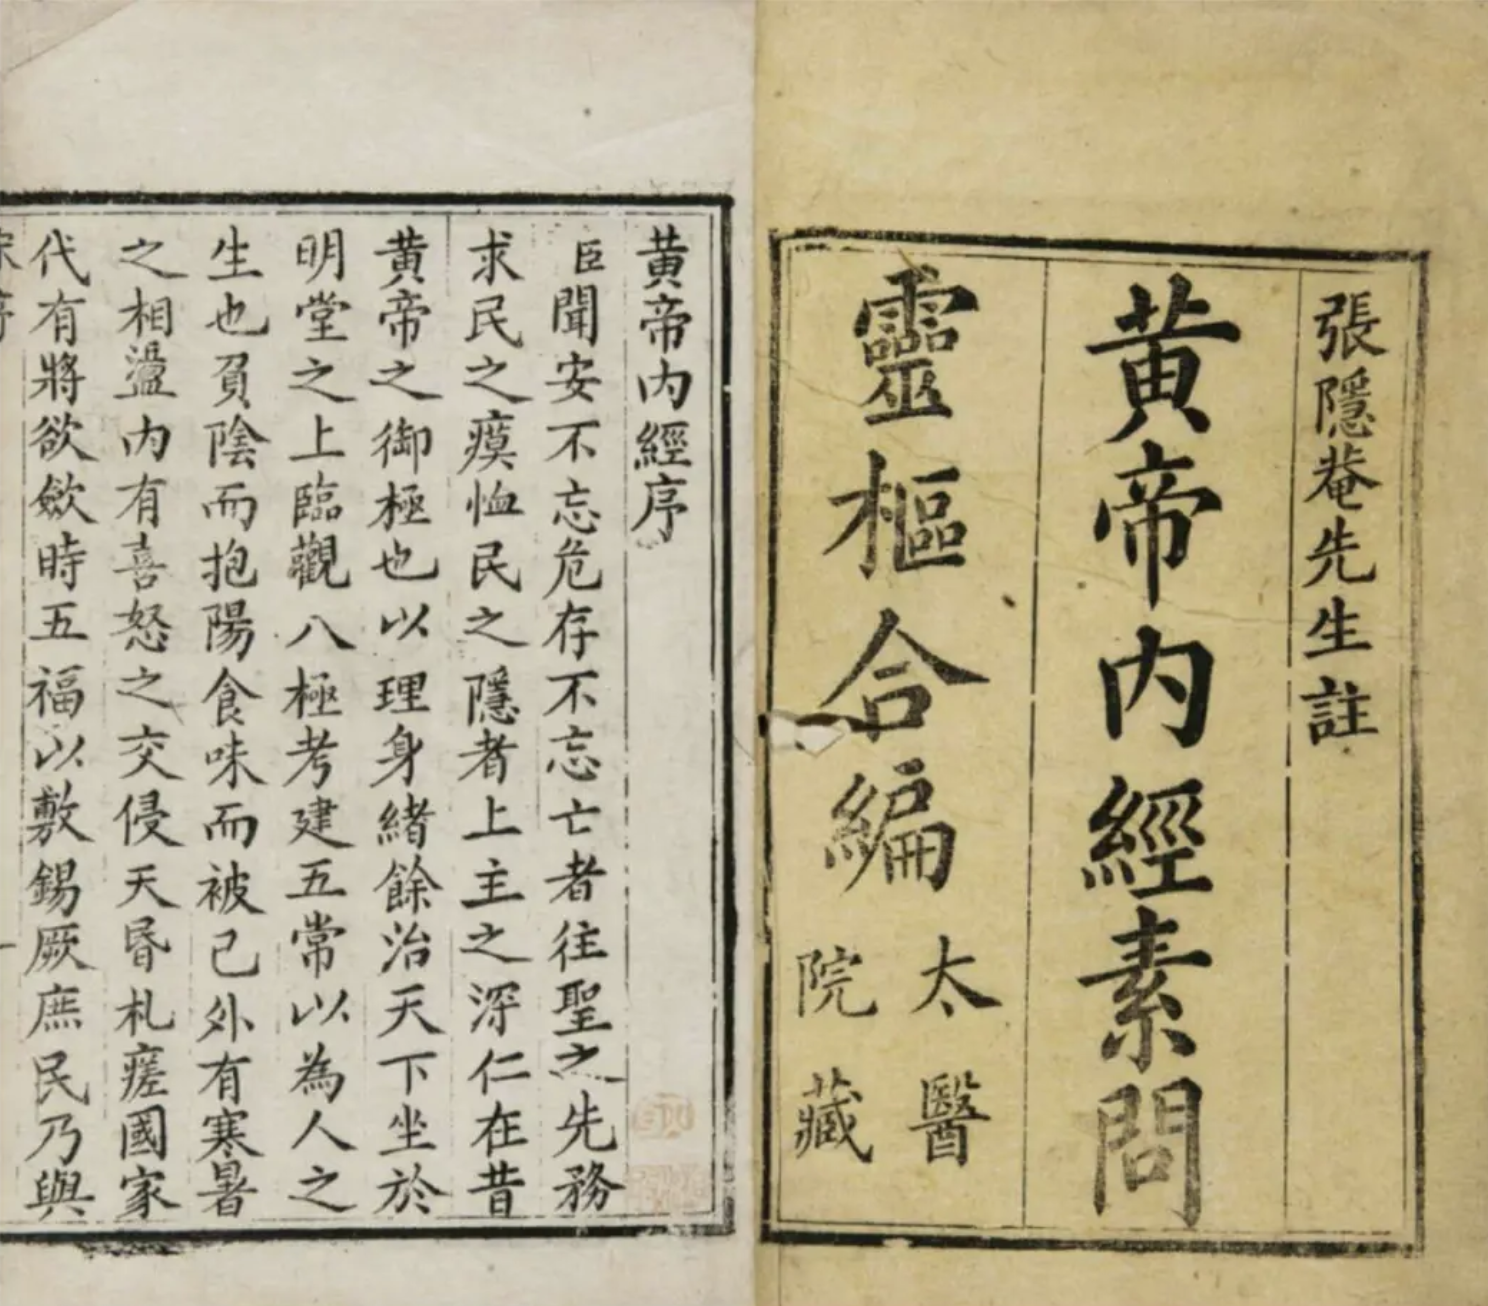 張隱菴先生註
黃帝內經素問
靈樞合編
太醫
院藏
黃帝內經序
臣聞安不忘危存不忘亡者往聖之先務
求民之瘼恤民之隱者上主之深仁在昔
黃帝之御極也以理身緒餘治天下坐於
明堂之上臨觀八極考建五常以為人之
生也負陰而抱陽食味而被色外有寒暑
之相盪內有喜怒之交侵天昬札瘥國家
代有將欲斂時五福以敷錫厥庶民乃與